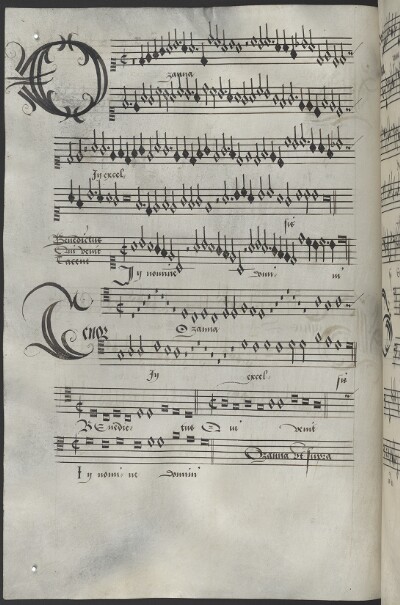 O
zanna
Jn excel,
sis
Benedictus
Qui venit
Tacent
Jn nomine Domi, ni
Tenor
Ozanna
Jn excel, sis
BEnedic, tus Q ui venit
Jn nomi, ne Domini
Ozanna vt supra